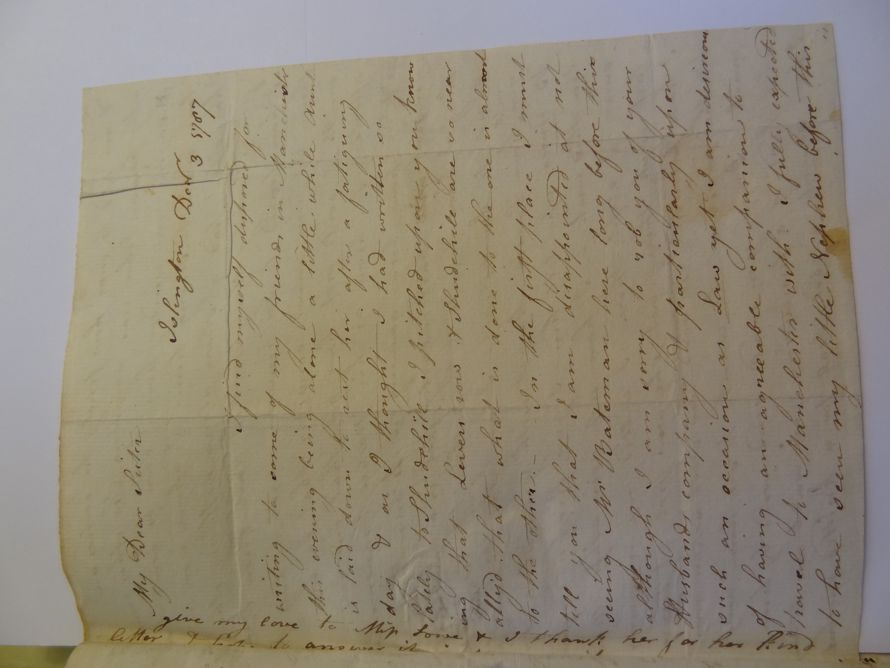 Islington Decr 3 1787
My Dear Sister
I find myself disposed for
writing to some of my friends in Manchester
this evening being alone a little while Aunt
is laid down to rest her after a fatiguing
day & as I thought I had written so
lately to Shudehill I pitched upon you know
ing that Levers row & Shudehill are so near
allyd that what is done to the one is almost
to the other.— In the first place I must
tell you that I am disappointed at not
seeing Mr Bateman here long before this
although I am sorry to rob you of your
Husbands company & particularly upon
such an occasion as Law yet I am desirous
of having an agreeable companion to
travel to Manchester with. I fully expected
to have seen my little Nephew before this
give my love to Miss & I thank her for her kind
letter & to answer it